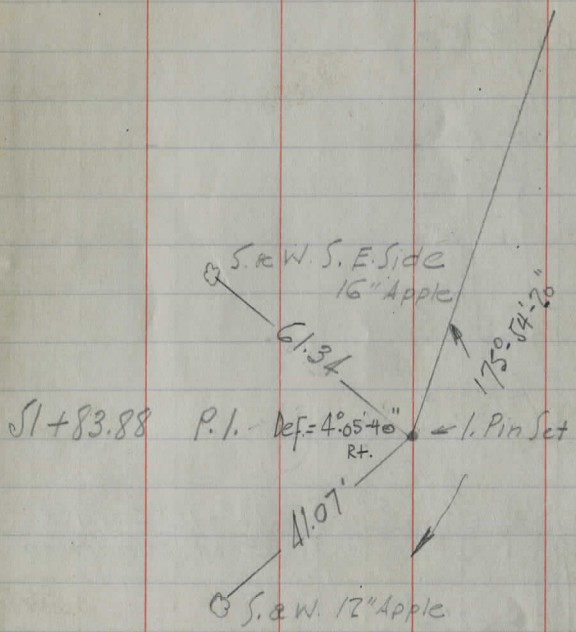 S. & W. S. E. Side
16" Apple
61.34
175°-54'-20"
51+83.88 P.I. Def.= 4°05'40" ← I. Pin Set
Rt.
41.07'
S. & W. 12" Apple